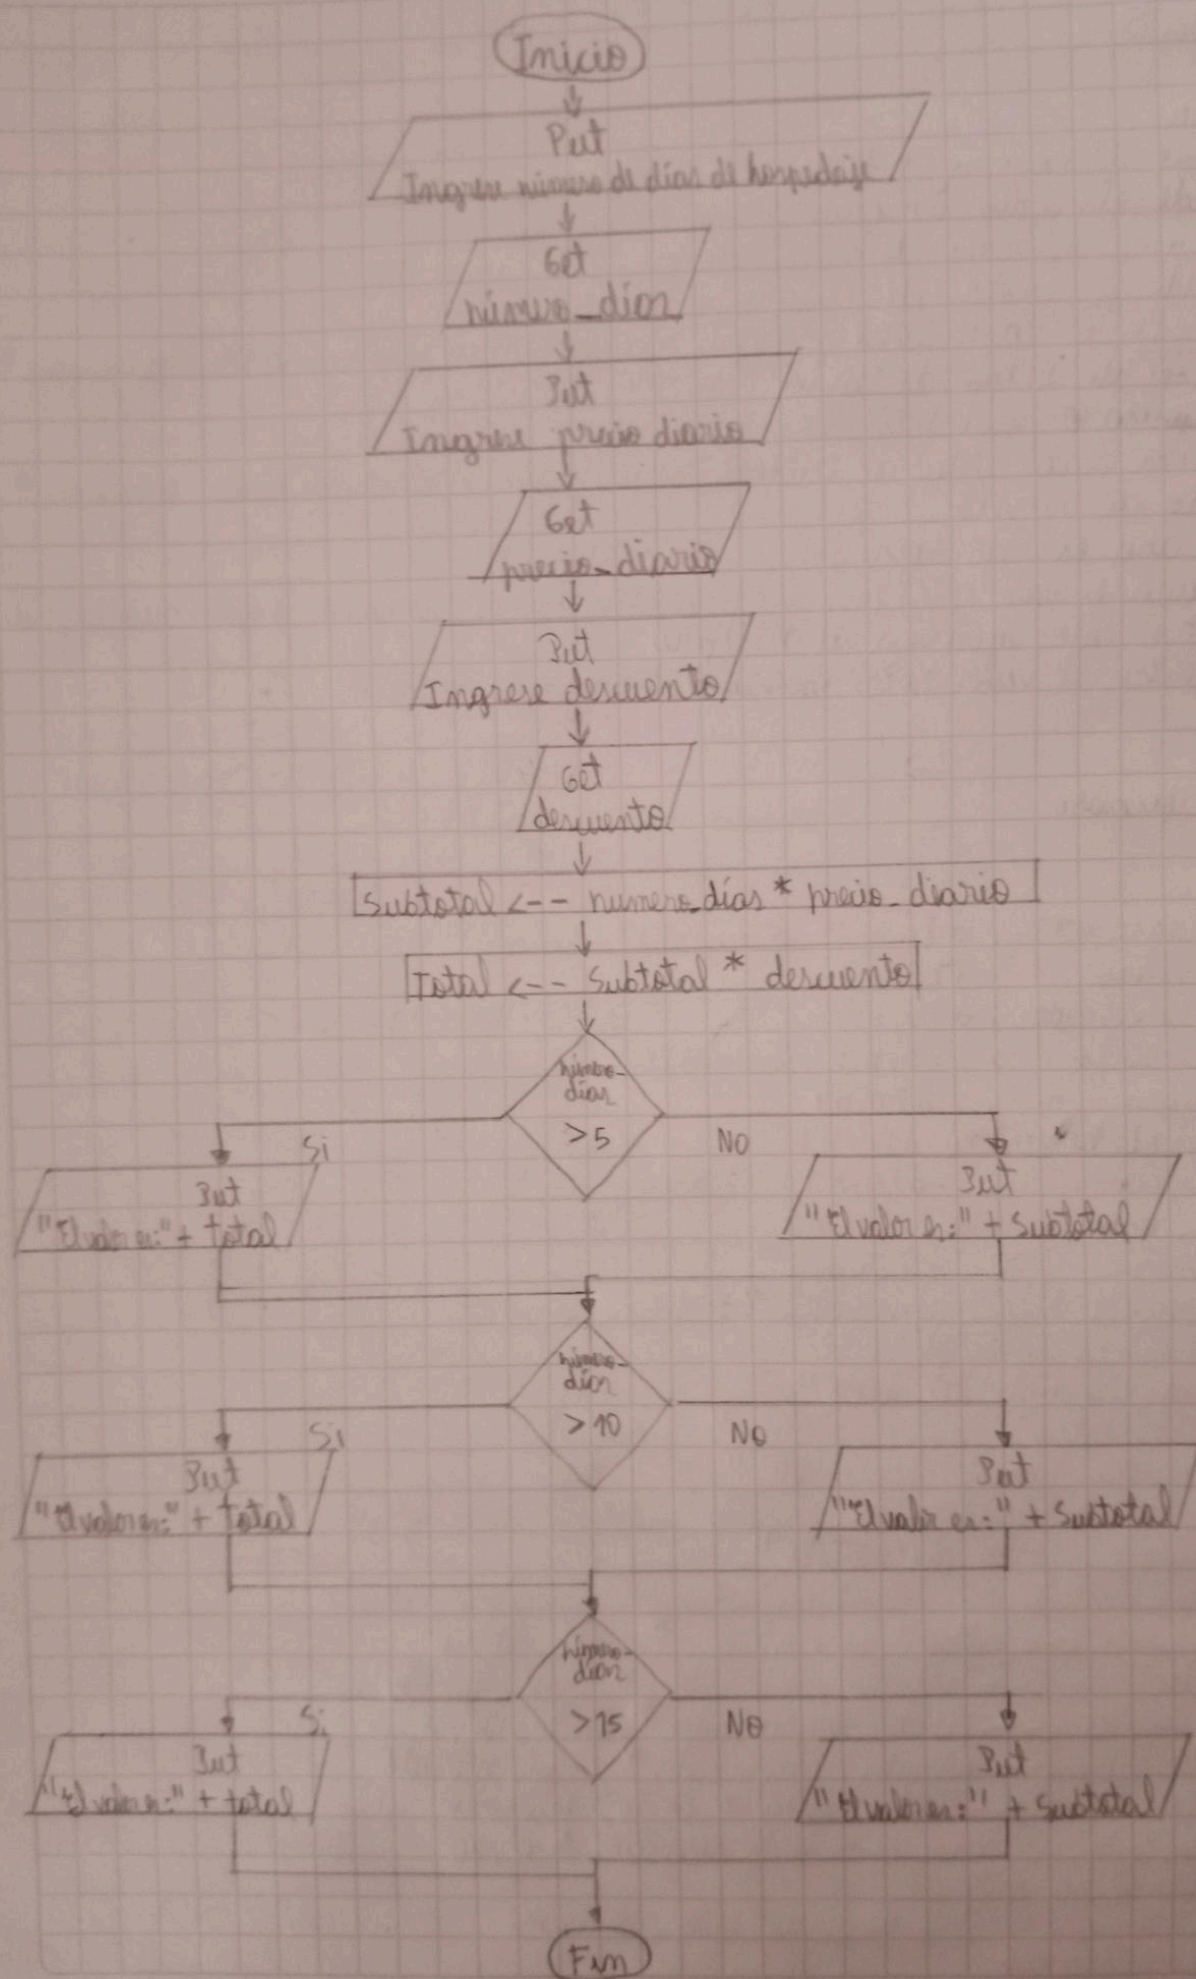 Inicio
Put
Ingrese número de días de hospedaje
Get
número_días
Put
Ingrese precio diario
Get
precio_diario
Put
Ingrese descuento
Get
descuento
Subtotal <-- numero_días * precio_diario
Total <-- Subtotal * descuento
número_
días
>5
Si
NO
Put
"El valor es:" + total
Put
"El valor es:" + Subtotal
número_
días
>10
Si
NO
Put
"El valor es:" + total
Put
"El valor es:" + Subtotal
número_
días
>15
Si
NO
Put
"El valor es:" + total
Put
"El valor es:" + Subtotal
Fin